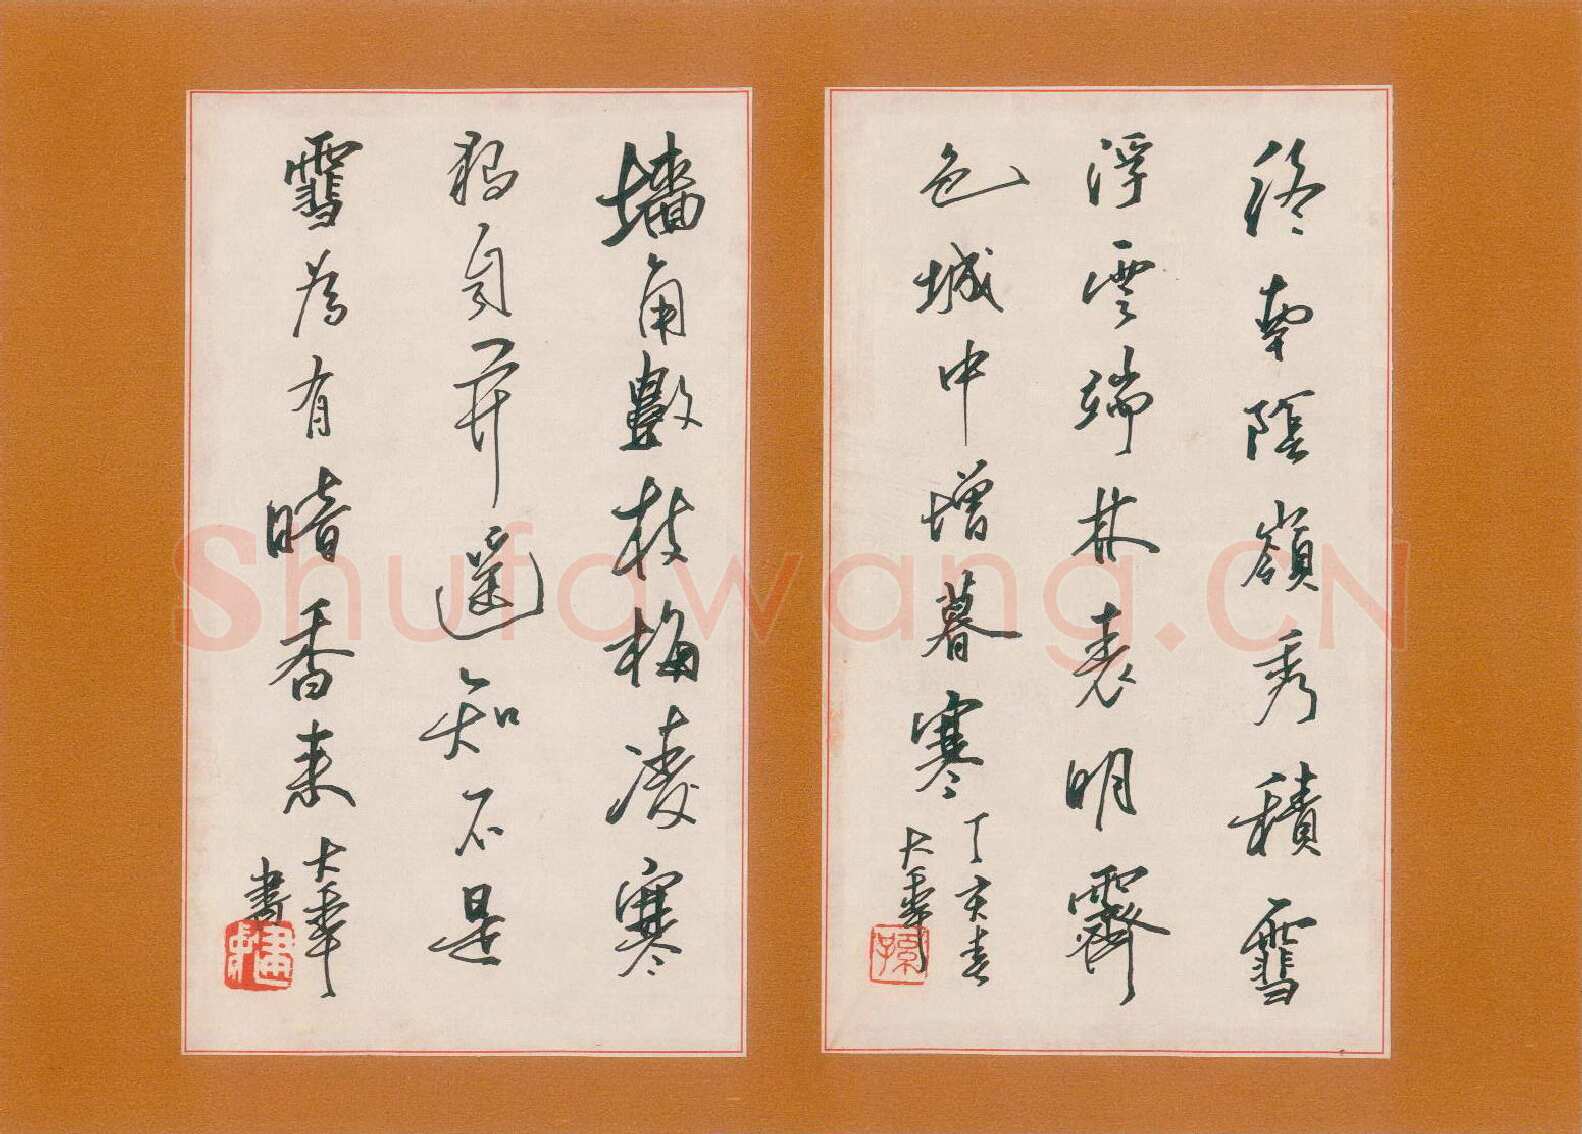 終南陰嶺秀積雪
浮雲端林表明霽
色城中增暮寒
丁亥春
大華
孫
墻角數枝梅凌寒
獨自開遥知不是
雪為有暗香来
大華
書
Shufawang.CN